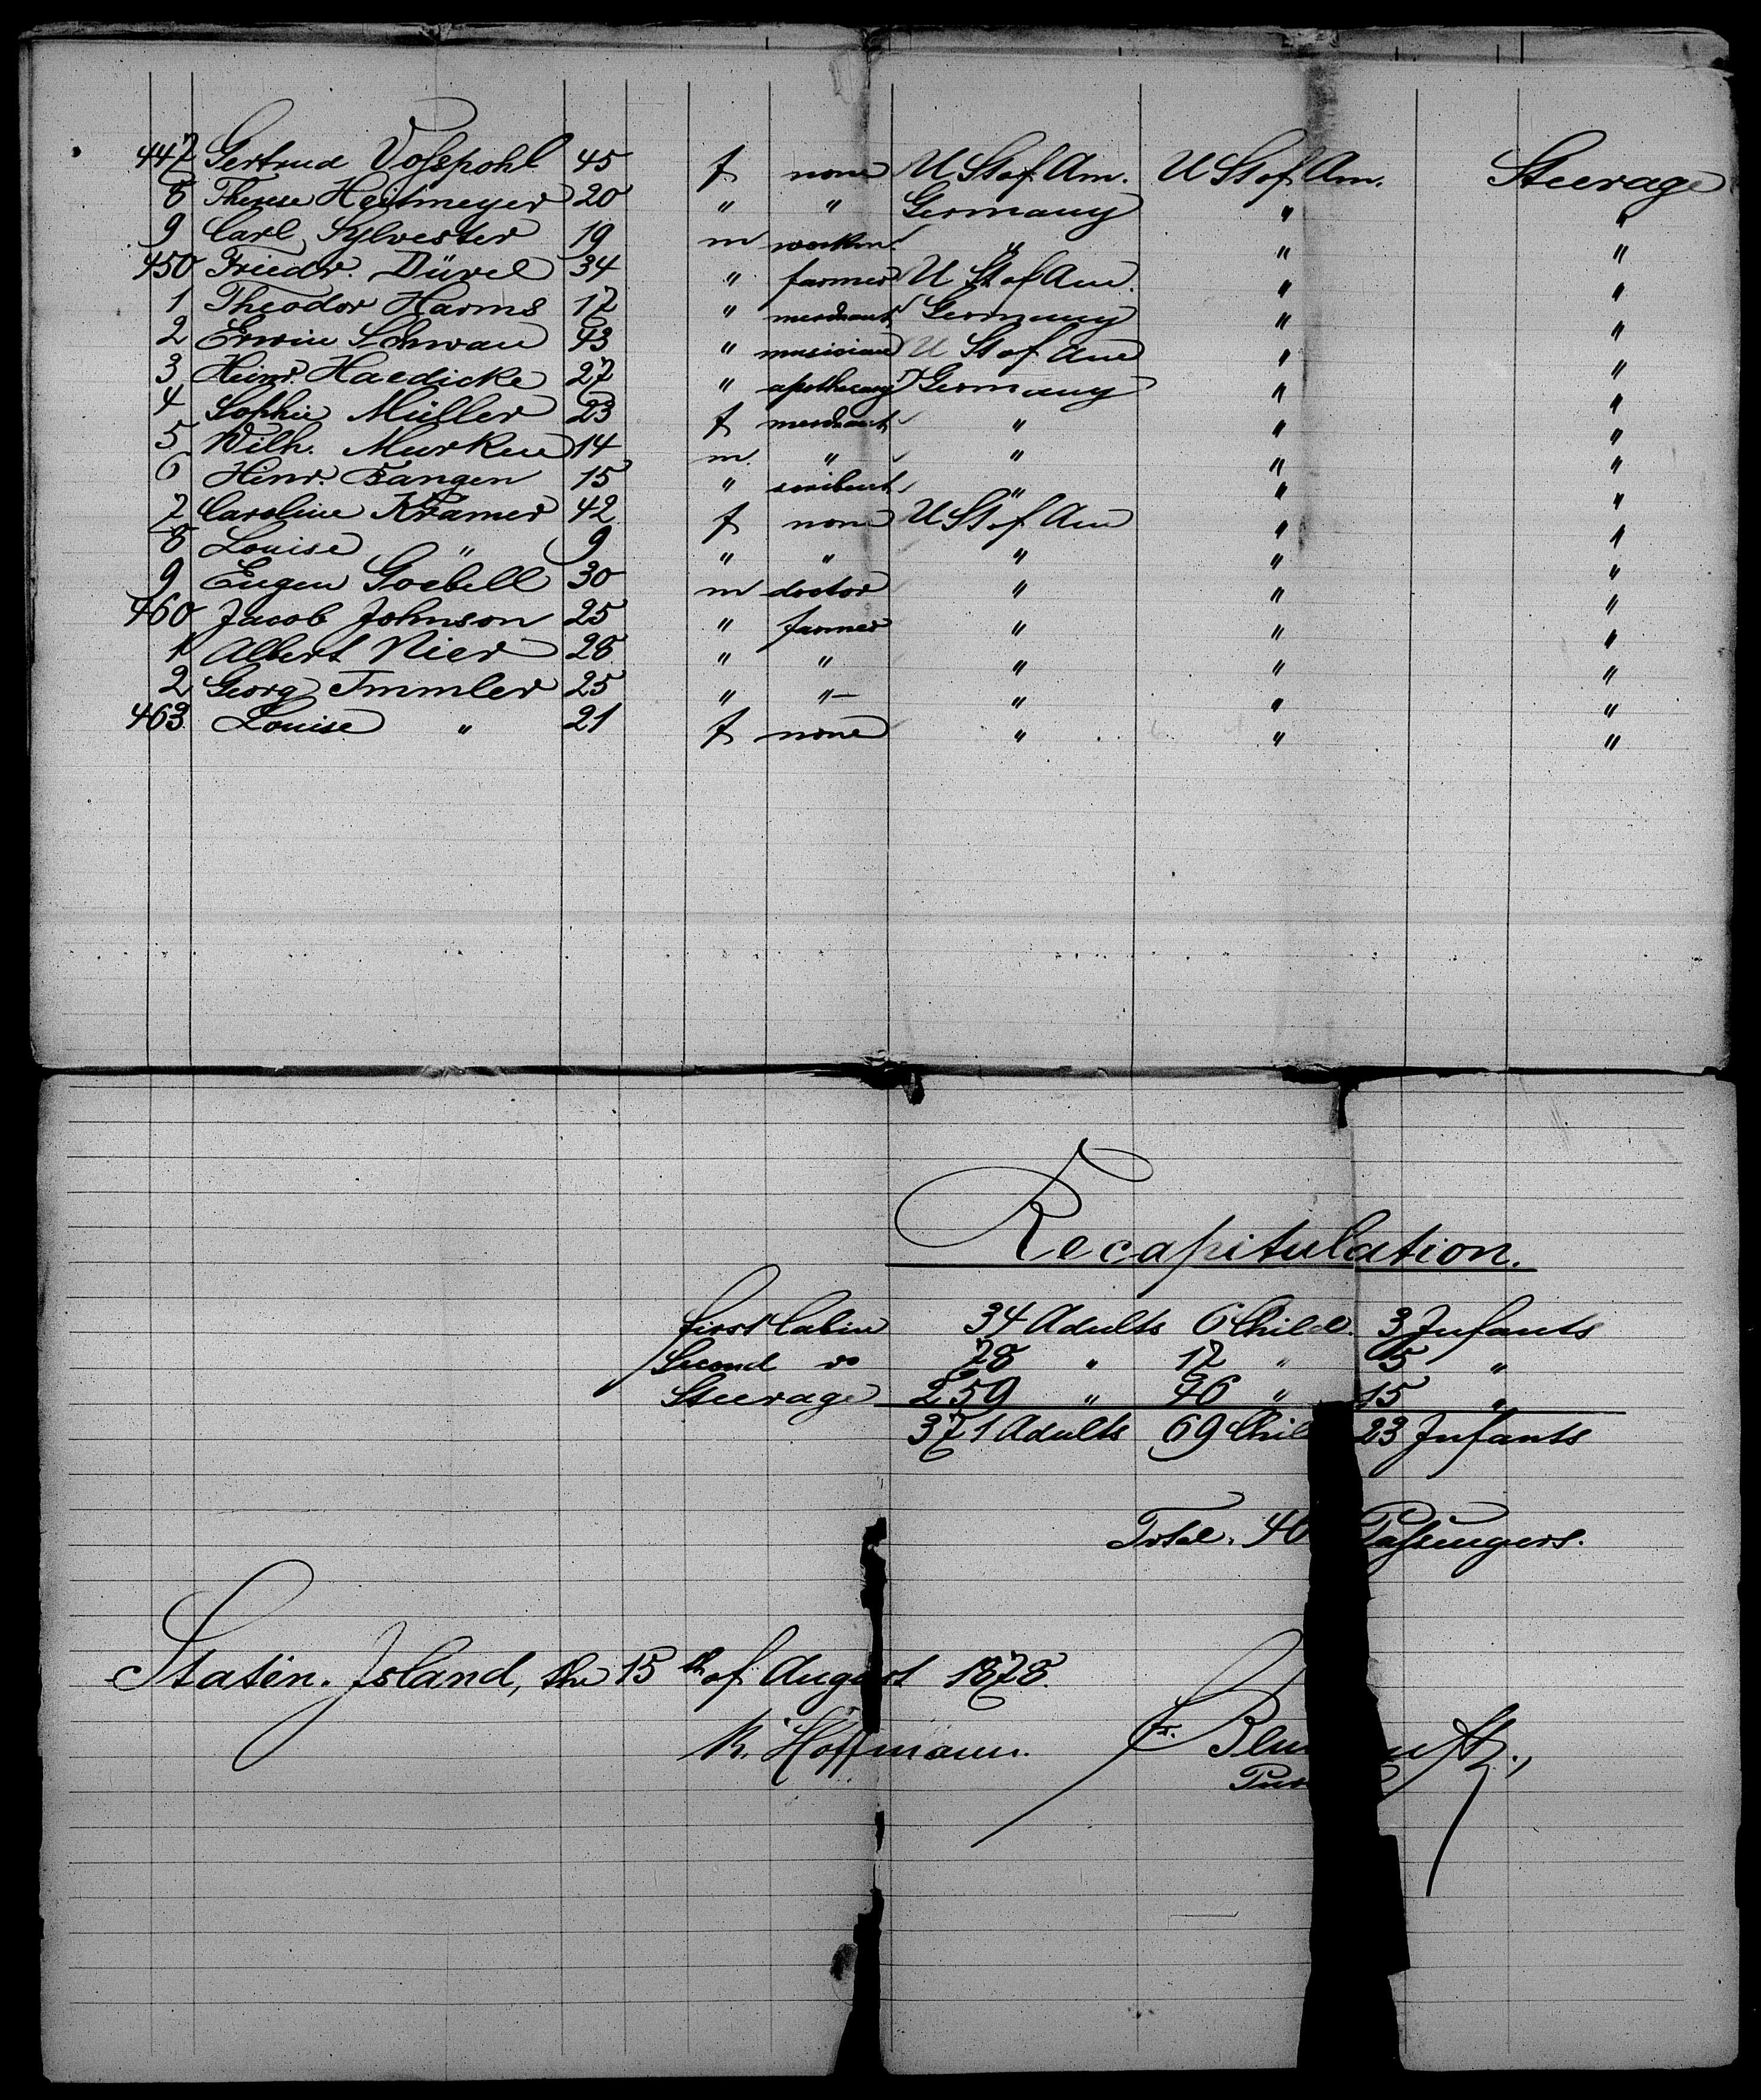 447 Gertrud Vosspohl 45 f none U St of Am. U St of Am. Steerage
8 Therese Heitmeyer 20 " " Germany " "
9 Carl Sylvester 19 m workm. " " "
450 Friedr. Düvel 34 " farmer U St of Am. " "
1 Theodor Harms 17 " merchant Germany " "
2 Erwin Schwan 43 " musician U St of Am " "
3 Heinr. Haedicke 27 " apothecary Germany " "
4 Sophie Müller 23 f merchant " " "
5 Wilh. Murken 14 m. " " " "
6 Hinr. Tangen 15 " scribent " " "
7 Caroline Kramer 42 f none U St of Am " "
8 Louise " 9 " " " " "
9 Eugen Goebell 30 m doctor " " "
460 Jacob Johnson 25 " farmer " " "
1 Albert Nier 28 " " " " "
2 Georg Immler 25 " " " " "
463 Louise " 21 f none " " "
Recapitulation.
first Cabin 34 Adults 6 Child. 3 Infants
Second do 78 " 17 " 5 "
Steerage 259 " 46 " 15 "
371 Adults 69 Chil 23 Infants
Total. 46 Passengers.
Staten. Island, the 15th of August 1878.
K. Hoffmann. fr.